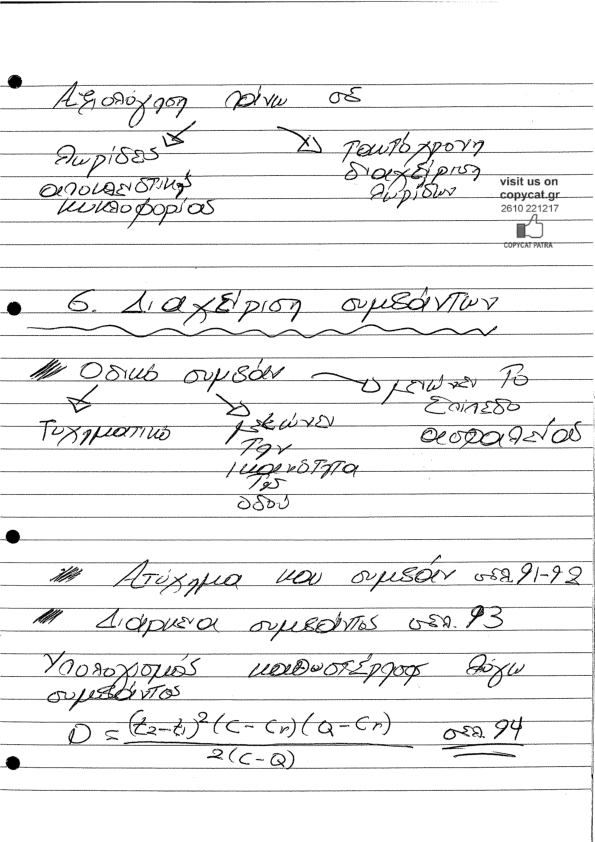 Αξιολόγηση πάνω σε
Λωρίδες
αποκλειστικής
κυκλοφορίας
Ταυτόχρονη
διαχείριση
λωρίδων
visit us on
copycat.gr
2610 221217
COPYCAT PATRA
6. Διαχείριση συμβάντων
Οδικό συμβάν
Τυχηματικό
μειώνει
την
ικανότητα
της
οδού
μειώνει το
επίπεδο
ασφαλείας
Ατύχημα και συμβάν σελ. 91-92
Διάρκεια συμβάντος σελ. 93
Υπολογισμός καθυστέρησης λόγω
συμβάντος
D = (t2-t1)²(C-Cr)(Q-Cr) / 2(C-Q) σελ. 94